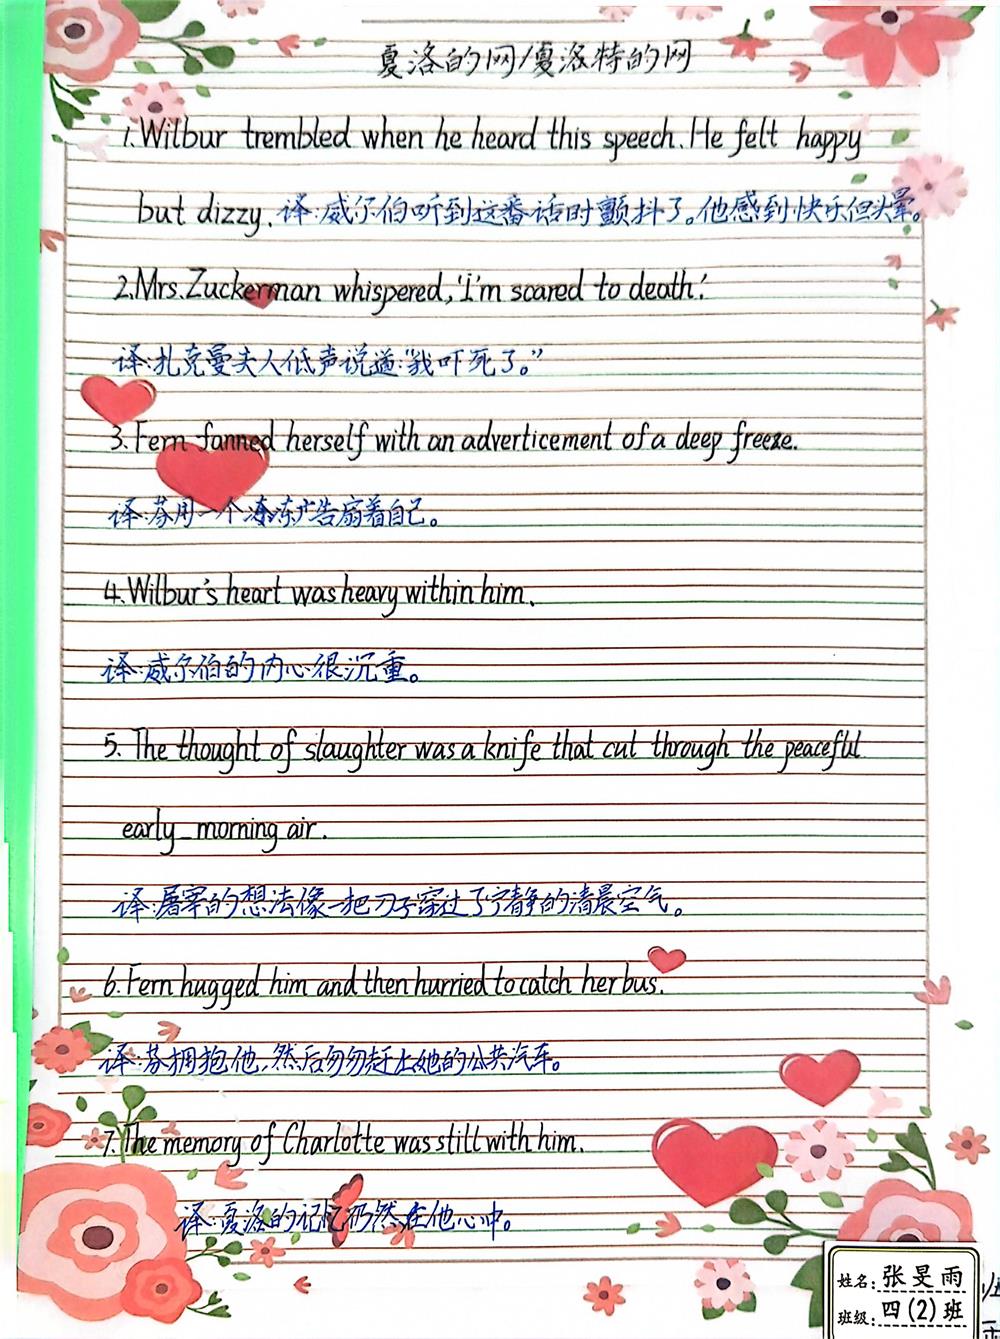 夏洛的网/夏洛特的网
1.Wilbur trembled when he heard this speech.He felt happy
but dizzy.译:威尔伯听到这番话时颤抖了。他感到快乐但头晕。
2.Mrs.Zuckerman whispered,'I'm scared to death.'
译:扎克曼夫人低声说道:"我吓死了。"
3.Fern fanned herself with an adverticement of a deep freeze.
译:芬用一个冷冻广告扇着自己。
4.Wilbur's heart was heavy within him.
译:威尔伯的内心很沉重。
5. The thought of slaughter was a knife that cut through the peaceful
early_morning air.
译:屠宰的想法像一把刀子穿过了宁静的清晨空气。
6.Fern hugged him and then hurried to catch her bus.
译:芬拥抱他,然后匆匆赶上她的公共汽车。
7.The memory of Charlotte was still with him.
译:夏洛的记忆仍然在他心中。
姓名:张旻雨
班级:四(2)班